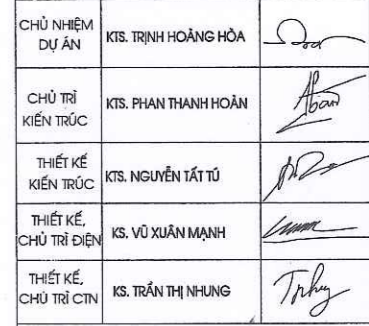 CHỦ NHIỆM
DỰ ÁN
KTS. TRỊNH HOÀNG HÒA
CHỦ TRÌ
KIẾN TRÚC
KTS. PHAN THANH HOÀN
THIẾT KẾ
KIẾN TRÚC
KTS. NGUYỄN TẤT TÚ
THIẾT KẾ,
CHỦ TRÌ ĐIỆN
KS. VŨ XUÂN MẠNH
THIẾT KẾ,
CHỦ TRÌ CTN
KS. TRẦN THỊ NHUNG